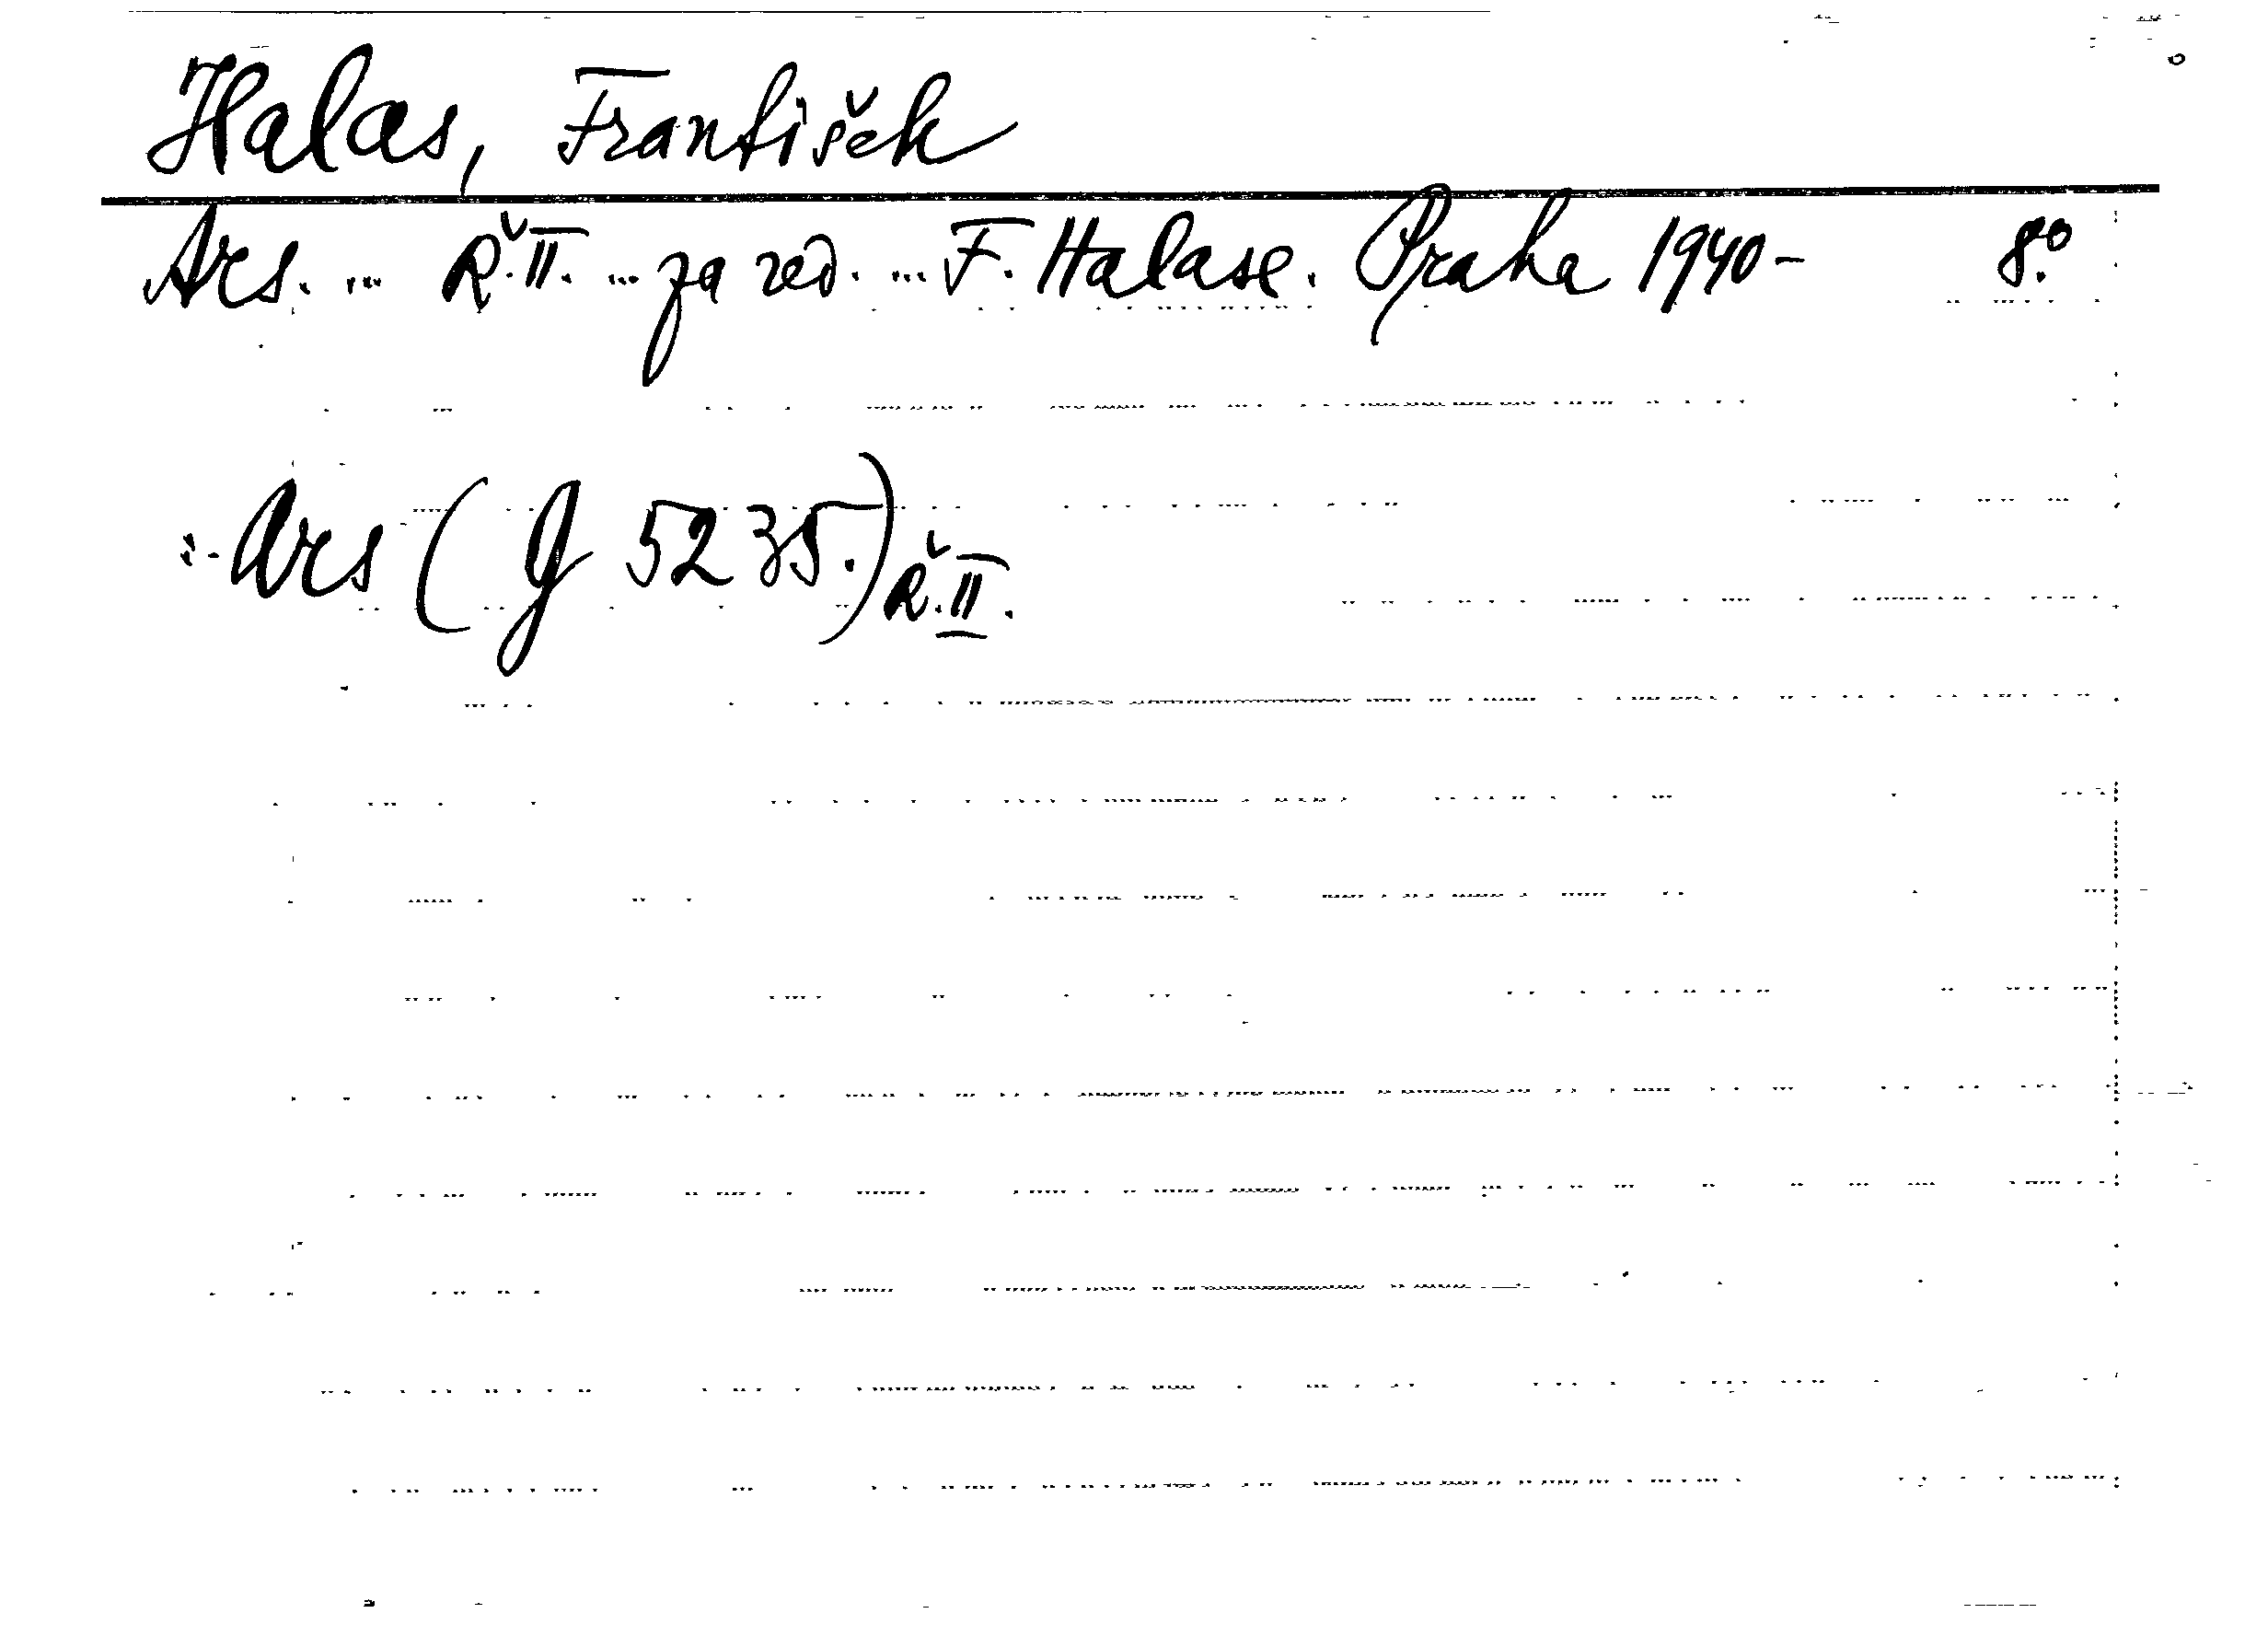 Halas, František
Ars. ... Ř.II. ... za red. ... F. Halase. Praha 1940- 8.°
:- Ars (G 5235.) Ř.II.